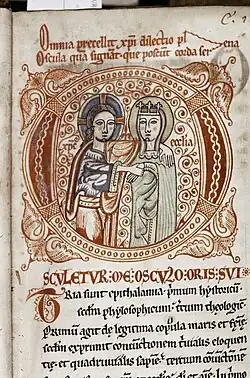 Omnia precellit xp̄i dilectio pl ena
Oscula quã signat que poscunt corda ser
xp̄c
ecclia
O
SCVLETVR ME OSCVLO ORIS SVI
Tria sunt epithalamia. primum hystoricũ
sec̄m phylosophicum. tercium theologic
Primum agit de legitima copula maris et
sec̄m exprimit coniunctionem triuialis eloquen
tie et quadruuialis sapie tercium coniunctione